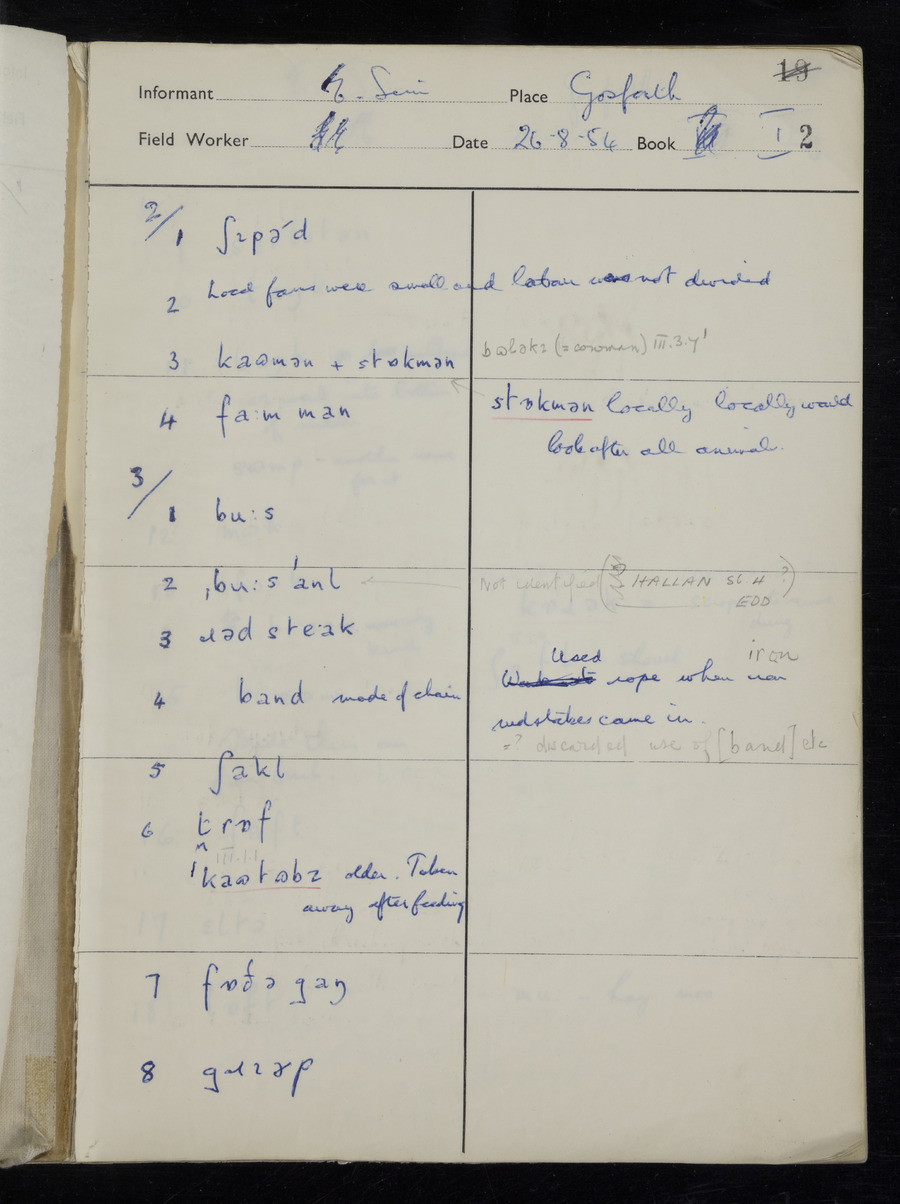 19
Informant Place Gosforth
Field Worker Date 26-8-54 Book I 2
2/
1 ʃɛpəd
2 Local farms were small and labour was not divided
3 kaʊmən + stɒkmən bʊləkz (= cowman) III.3.4'
4 fa:m man stɒkmən locally locally would
look after all animal.
3/
1 bu:s
2 ˌbu:s ˈanl Not identified (HALLAN sb 4 ?)
EDD
3 ɹəd ste:ak
4 band made of chain Used rope when iron iron
redstakes came in.
=? discarded use of [band] etc
5 ʃakl
6 trɒf
III.1.1
ˈkaʊtʊbz older. Taken
away after feeding
7 fɒðə gaŋ
8